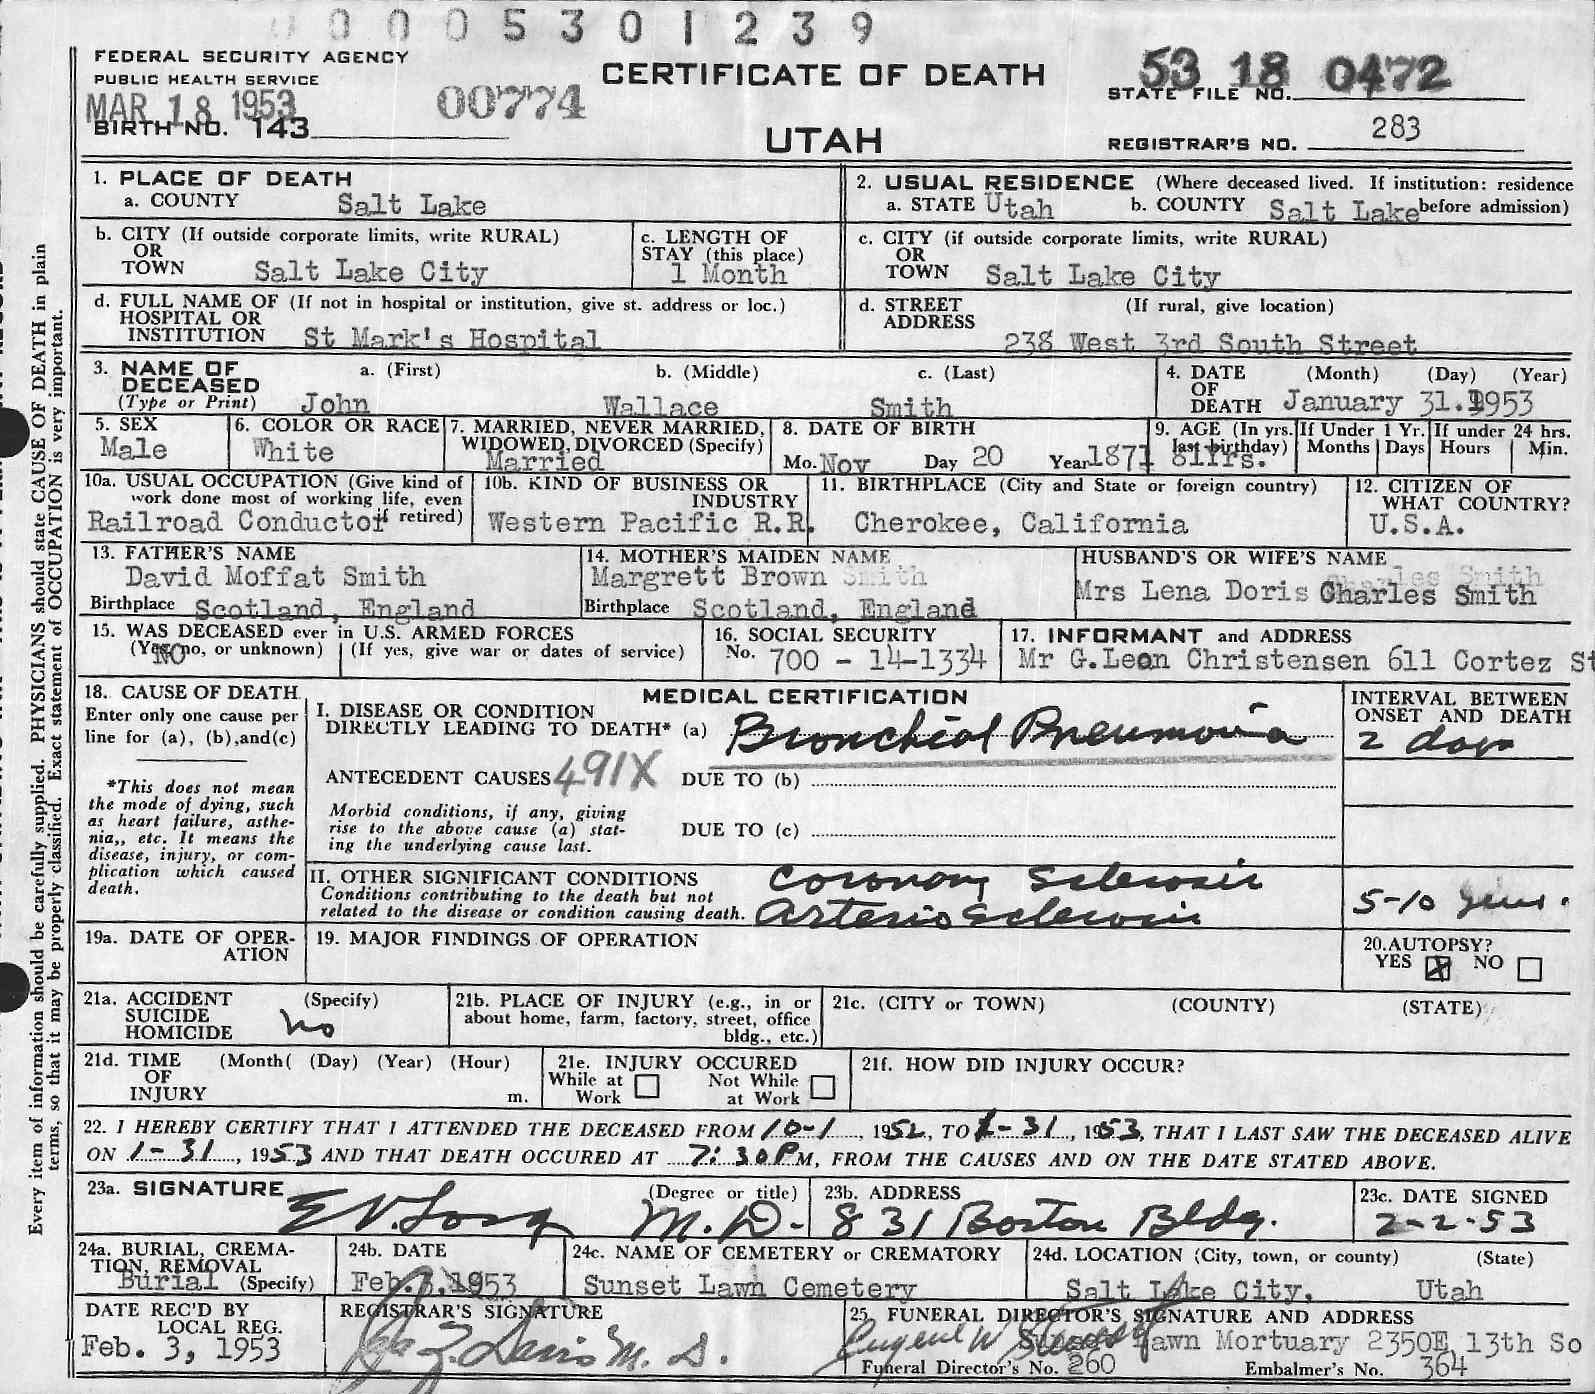 0005301239
FEDERAL SECURITY AGENCY
PUBLIC HEALTH SERVICE
MAR 18 1953
BIRTH NO. 143
00774
CERTIFICATE OF DEATH
UTAH
53 18 0472
STATE FILE NO.
REGISTRAR'S NO. 283
1. PLACE OF DEATH
a. COUNTY Salt Lake
2. USUAL RESIDENCE (Where deceased lived. If institution: residence before admission)
a. STATE Utah b. COUNTY Salt Lake
b. CITY (If outside corporate limits, write RURAL)
OR
TOWN Salt Lake City
c. LENGTH OF
STAY (this place)
1 Month
c. CITY (if outside corporate limits, write RURAL)
OR
TOWN Salt Lake City
d. FULL NAME OF (If not in hospital or institution, give st. address or loc.)
HOSPITAL OR
INSTITUTION St Mark's Hospital
d. STREET (If rural, give location)
ADDRESS
238 West 3rd South Street
3. NAME OF a. (First) b. (Middle) c. (Last)
DECEASED
(Type or Print) John Wallace Smith
4. DATE (Month) (Day) (Year)
OF
DEATH January 31.1953
5. SEX
Male
6. COLOR OR RACE
White
7. MARRIED, NEVER MARRIED,
WIDOWED, DIVORCED (Specify)
Married
8. DATE OF BIRTH
Mo. Nov Day 20 Year 1871
9. AGE (In yrs.
last birthday)
81Yrs.
If Under 1 Yr.
Months Days
If under 24 hrs.
Hours Min.
10a. USUAL OCCUPATION (Give kind of
work done most of working life, even
if retired)
Railroad Conductor
10b. KIND OF BUSINESS OR
INDUSTRY
Western Pacific R.R.
11. BIRTHPLACE (City and State or foreign country)
Cherokee, California
12. CITIZEN OF
WHAT COUNTRY?
U.S.A.
13. FATHER'S NAME
David Moffat Smith
Birthplace Scotland, England
14. MOTHER'S MAIDEN NAME
Margrett Brown Smith
Birthplace Scotland, England
HUSBAND'S OR WIFE'S NAME
Charles Smith
Mrs Lena Doris Charles Smith
15. WAS DECEASED ever in U.S. ARMED FORCES
(Yes, no, or unknown) (If yes, give war or dates of service)
NO
16. SOCIAL SECURITY
No. 700 - 14-1334
17. INFORMANT and ADDRESS
Mr G.Leon Christensen 611 Cortez St
18. CAUSE OF DEATH
Enter only one cause per
line for (a), (b),and(c)
*This does not mean
the mode of dying, such
as heart failure, asthe-
nia,, etc. It means the
disease, injury, or com-
plication which caused
death.
MEDICAL CERTIFICATION
I. DISEASE OR CONDITION
DIRECTLY LEADING TO DEATH* (a) Bronchial Pneumonia
ANTECEDENT CAUSES 491X DUE TO (b)
Morbid conditions, if any, giving
rise to the above cause (a) stat-
ing the underlying cause last.
DUE TO (c)
II. OTHER SIGNIFICANT CONDITIONS
Conditions contributing to the death but not
related to the disease or condition causing death.
Coronary Sclerosis
Arterio Sclerosis
INTERVAL BETWEEN
ONSET AND DEATH
2 days
5-10 years.
19a. DATE OF OPER-
ATION
19. MAJOR FINDINGS OF OPERATION
20.AUTOPSY?
YES NO
21a. ACCIDENT (Specify)
SUICIDE
HOMICIDE no
21b. PLACE OF INJURY (e.g., in or
about home, farm, factory, street, office
bldg., etc.)
21c. (CITY or TOWN) (COUNTY) (STATE)
21d. TIME (Month( (Day) (Year) (Hour)
OF
INJURY m.
21e. INJURY OCCURED
While at Work
Not While at Work
21f. HOW DID INJURY OCCUR?
22. I HEREBY CERTIFY THAT I ATTENDED THE DECEASED FROM 10-1, 1952, TO 1-31, 1953, THAT I LAST SAW THE DECEASED ALIVE
ON 1-31, 1953 AND THAT DEATH OCCURED AT 7:30PM, FROM THE CAUSES AND ON THE DATE STATED ABOVE.
23a. SIGNATURE (Degree or title)
M.D.
23b. ADDRESS
831 Boston Bldg.
23c. DATE SIGNED
2-2-53
24a. BURIAL, CREMA-
TION, REMOVAL
Burial (Specify)
24b. DATE
Feb.3,1953
24c. NAME OF CEMETERY or CREMATORY
Sunset Lawn Cemetery
24d. LOCATION (City, town, or county) (State)
Salt Lake City, Utah
DATE REC'D BY
LOCAL REG.
Feb. 3, 1953
REGISTRAR'S SIGNATURE
Davis M. D.
25. FUNERAL DIRECTOR'S SIGNATURE AND ADDRESS
Eugene W
Sunset Lawn Mortuary 2350E 13th So
Funeral Director's No. 260 Embalmer's No. 364
Every item of information should be carefully supplied. PHYSICIANS should state CAUSE OF DEATH in plain
terms, so that it may be properly classified. Exact statement of OCCUPATION is very important.